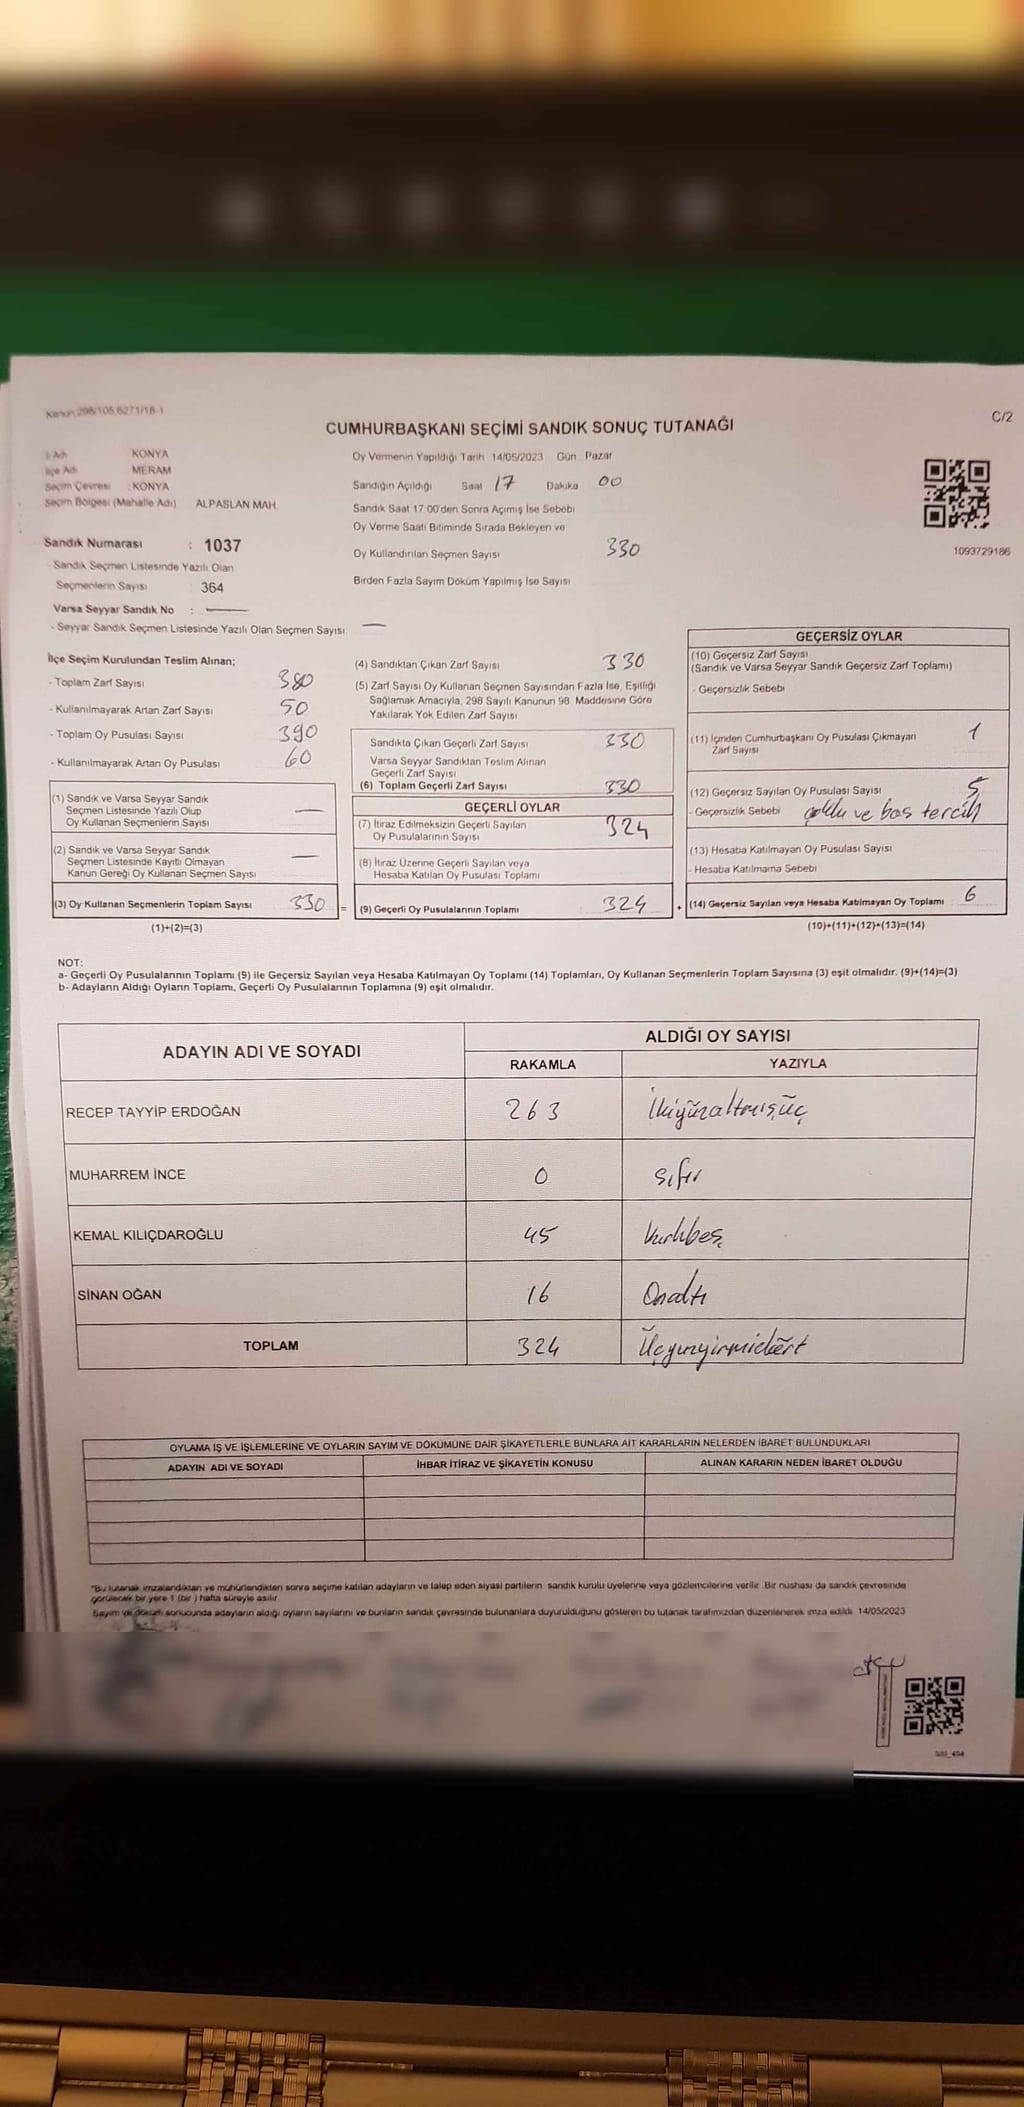 Kanun 298/105,6271/18-1
C/2
CUMHURBAŞKANI SEÇİMİ SANDIK SONUÇ TUTANAĞI
İl Adı KONYA
İlçe Adı MERAM
Seçim Çevresi : KONYA
Seçim Bölgesi (Mahalle Adı) ALPASLAN MAH.
Oy Vermenin Yapıldığı Tarih 14/05/2023 Gün Pazar
Sandığın Açıldığı Saat 17 Dakika 00
Sandık Saat 17.00'den Sonra Açımış İse Sebebi
Oy Verme Saati Bitiminde Sırada Bekleyen ve
Oy Kullandırılan Seçmen Sayısı 330
Birden Fazla Sayım Döküm Yapılmış İse Sayısı
1093729186
Sandık Numarası : 1037
- Sandık Seçmen Listesinde Yazılı Olan
Seçmenlerin Sayısı : 364
Varsa Seyyar Sandık No : —
- Seyyar Sandık Seçmen Listesinde Yazılı Olan Seçmen Sayısı: —
İlçe Seçim Kurulundan Teslim Alınan;
- Toplam Zarf Sayısı 380
- Kullanılmayarak Artan Zarf Sayısı 50
- Toplam Oy Pusulası Sayısı 390
- Kullanılmayarak Artan Oy Pusulası 60
(1) Sandık ve Varsa Seyyar Sandık
Seçmen Listesinde Yazılı Olup
Oy Kullanan Seçmenlerin Sayısı —
(2) Sandık ve Varsa Seyyar Sandık
Seçmen Listesinde Kayıtlı Olmayan
Kanun Gereği Oy Kullanan Seçmen Sayısı —
(3) Oy Kullanan Seçmenlerin Toplam Sayısı 330 =
(1)+(2)=(3)
(4) Sandıktan Çıkan Zarf Sayısı 330
(5) Zarf Sayısı Oy Kullanan Seçmen Sayısından Fazla İse, Eşitliği
Sağlamak Amacıyla, 298 Sayılı Kanunun 98. Maddesine Göre
Yakılarak Yok Edilen Zarf Sayısı
Sandıkta Çıkan Geçerli Zarf Sayısı 330
Varsa Seyyar Sandıktan Teslim Alınan
Geçerli Zarf Sayısı
(6) Toplam Geçerli Zarf Sayısı 330
GEÇERLİ OYLAR
(7) İtiraz Edilmeksizin Geçerli Sayılan
Oy Pusulalarının Sayısı 324
(8) İtiraz Üzerine Geçerli Sayılan veya
Hesaba Katılan Oy Pusulası Toplamı
(9) Geçerli Oy Pusulalarının Toplamı 324 +
GEÇERSİZ OYLAR
(10) Geçersiz Zarf Sayısı
(Sandık ve Varsa Seyyar Sandık Geçersiz Zarf Toplamı)
- Geçersizlik Sebebi
(11) İçinden Cumhurbaşkanı Oy Pusulası Çıkmayan
Zarf Sayısı 1
(12) Geçersiz Sayılan Oy Pusulası Sayısı 5
- Geçersizlik Sebebi ve bos tercih
(13) Hesaba Katılmayan Oy Pusulası Sayısı
- Hesaba Katılmama Sebebi
(14) Geçersiz Sayılan veya Hesaba Katılmayan Oy Toplamı 6
(10)+(11)+(12)+(13)=(14)
NOT:
a- Geçerli Oy Pusulalarının Toplamı (9) ile Geçersiz Sayılan veya Hesaba Katılmayan Oy Toplamı (14) Toplamları, Oy Kullanan Seçmenlerin Toplam Sayısına (3) eşit olmalıdır. (9)+(14)=(3)
b- Adayların Aldığı Oyların Toplamı, Geçerli Oy Pusulalarının Toplamına (9) eşit olmalıdır.
ADAYIN ADI VE SOYADI ALDIĞI OY SAYISI
RAKAMLA YAZIYLA
RECEP TAYYİP ERDOĞAN 263 İkiyüzaltmışüç
MUHARREM İNCE 0 sıfır
KEMAL KILIÇDAROĞLU 45 Kırkbeş
SİNAN OĞAN 16 Onaltı
TOPLAM 324 Üçyüzyirmidört
OYLAMA İŞ VE İŞLEMLERİNE VE OYLARIN SAYIM VE DÖKÜMÜNE DAİR ŞİKAYETLERLE BUNLARA AİT KARARLARIN NELERDEN İBARET BULUNDUKLARI
ADAYIN ADI VE SOYADI İHBAR İTİRAZ VE ŞİKAYETİN KONUSU ALINAN KARARIN NEDEN İBARET OLDUĞU
*Bu tutanak imzalandıktan ve mühürlendikten sonra seçime katılan adayların ve talep eden siyasi partilerin sandık kurulu üyelerine veya gözlemcilerine verilir. Bir nüshası da sandık çevresinde
görülecek bir yere 1 (bir) hafta süreyle asılır.
Sayım ve döküm sonucunda adayların aldığı oyların sayılarını ve bunların sandık çevresinde bulunanlara duyurulduğunu gösteren bu tutanak tarafımızdan düzenlenerek imza edildi. 14/05/2023